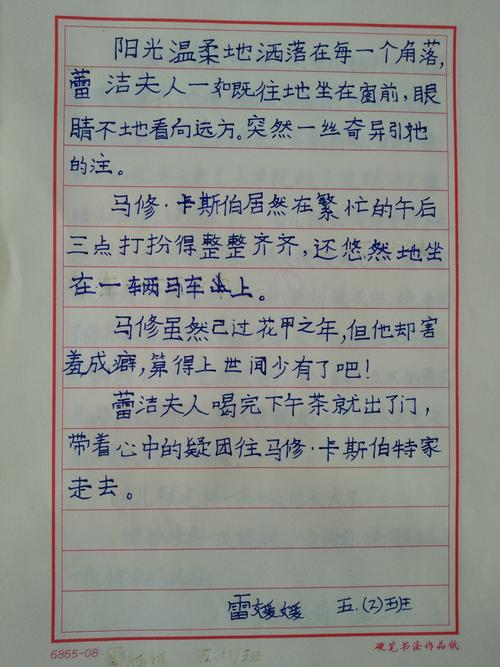 阳光温柔地洒落在每一个角落,
蕾洁夫人一如既往地坐在窗前,眼
睛不地看向远方。突然一丝奇异引她
的注。
马修·卡斯伯居然在繁忙的午后
三点打扮得整整齐齐,还悠然地坐
在一辆马车上。
马修虽然已过花甲之年,但他却害
羞成癖,算得上世间少有了吧!
蕾洁夫人喝完下午茶就出了门,
带着心中的疑团往马修·卡斯伯特家
走去。
雷媛媛 五.(2)班
6865-08 硬笔书法作品纸
五.(2)班